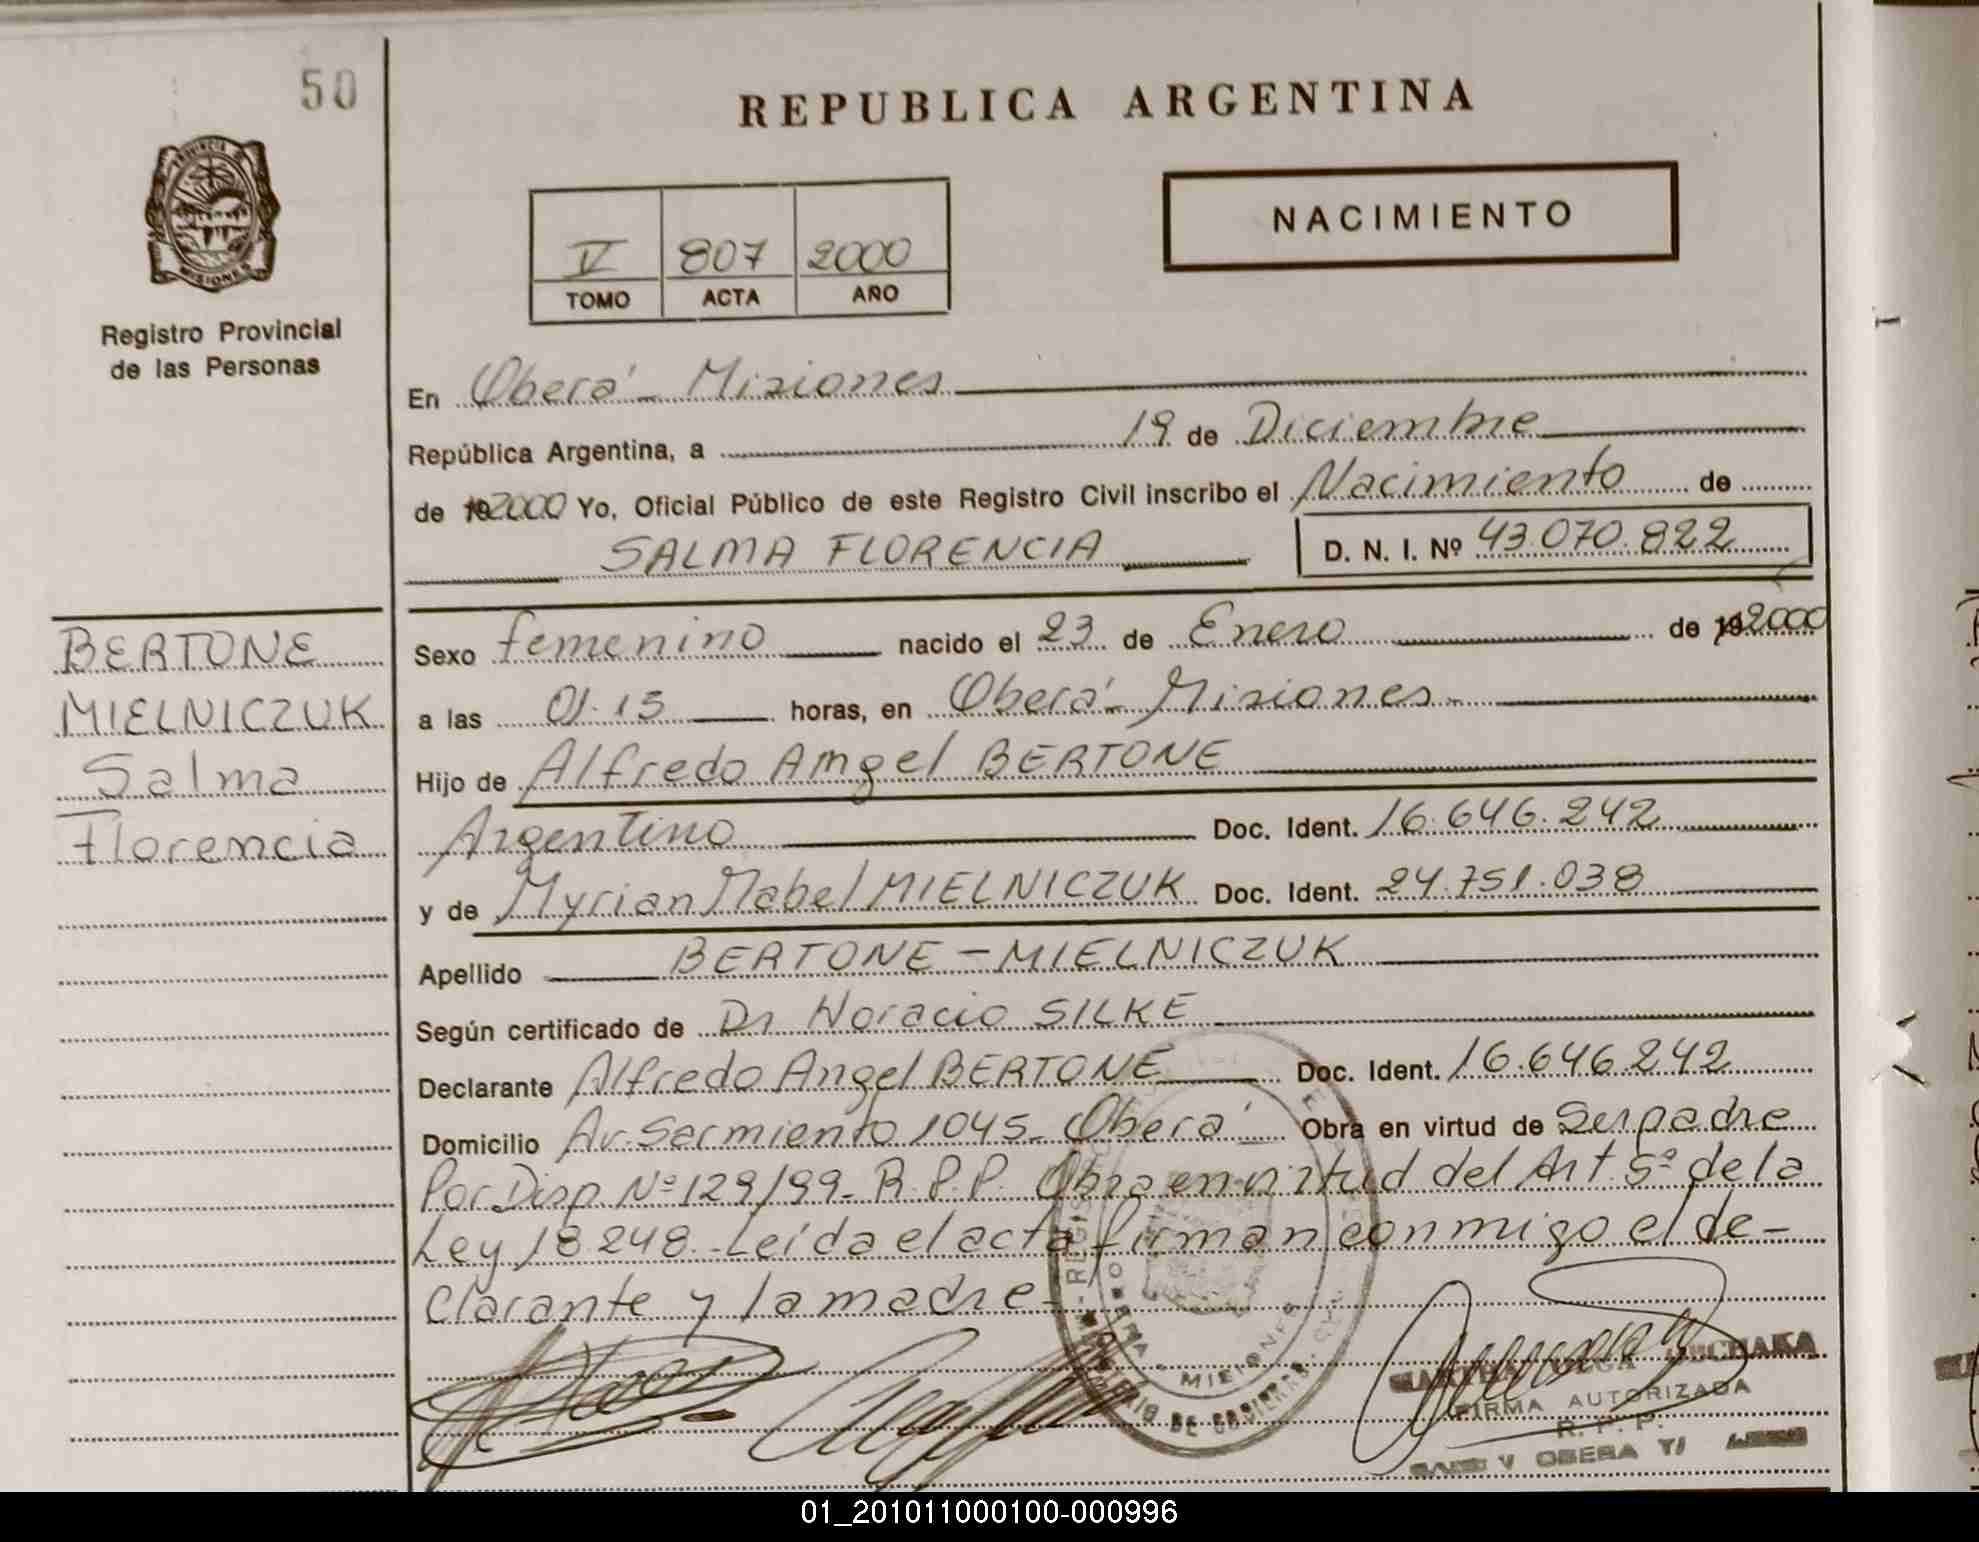 50
REPUBLICA ARGENTINA
PROVINCIA DE
MISIONES
Registro Provincial
de las Personas
NACIMIENTO
V 807 2000
TOMO ACTA AÑO
En Oberá - Misiones
República Argentina, a 19 de Diciembre
de 192000 Yo, Oficial Público de este Registro Civil inscribo el Nacimiento de
SALMA FLORENCIA D. N. I. Nº 43.070.822
BERTONE
MIELNICZUK
Salma
Florencia
Sexo femenino nacido el 23 de Enero de 192000
a las 01.15 horas, en Oberá - Misiones
Hijo de Alfredo Angel BERTONE
Argentino Doc. Ident. 16.646.242
y de Myrian Mabel MIELNICZUK Doc. Ident. 24.751.038
Apellido BERTONE - MIELNICZUK
Según certificado de Dr Horacio SILKE
Declarante Alfredo Angel BERTONE Doc. Ident. 16.646.242
Domicilio Av. Sarmiento 1045 - Oberá Obra en virtud de Ser padre
Por Disp. Nº 129/99 - R.P.P. Obra en virtud del Art. 5º de la
Ley 18.248 - Leída el acta firman conmigo el de-
clarante y la madre -
MISIONES
FIRMA AUTORIZADA
R. P. P.
OBERA
01_201011000100-000996